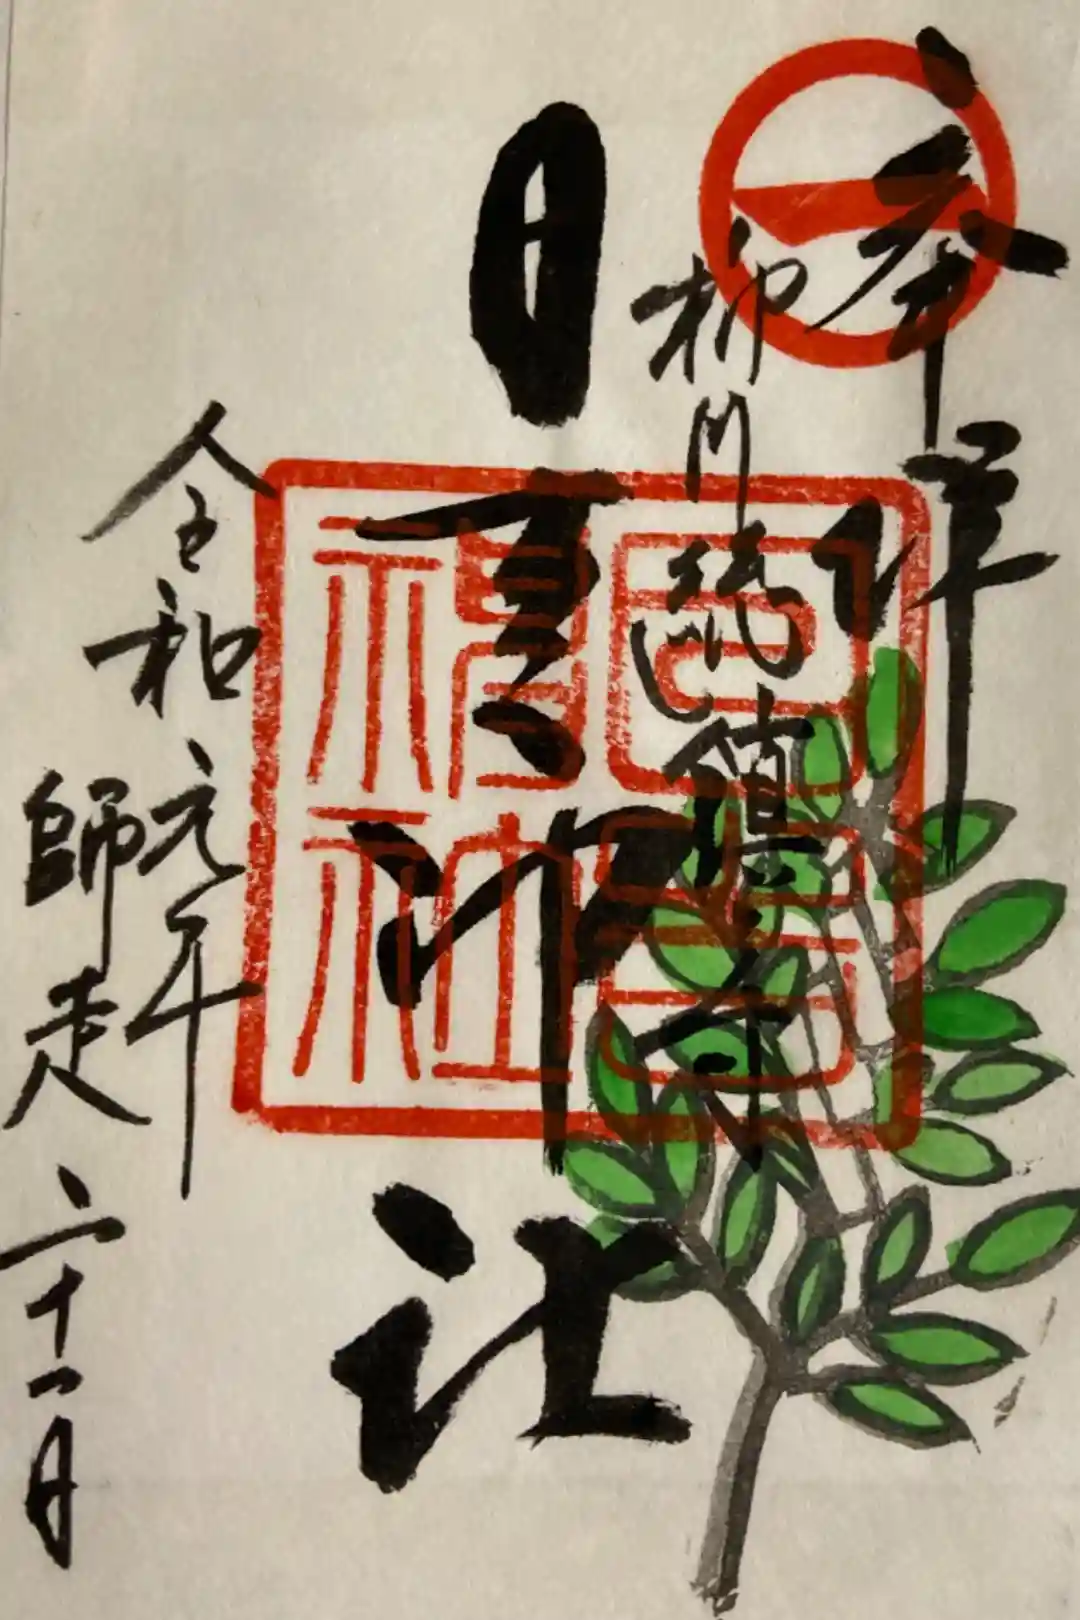 奉拝
柳川総鎮守
日吉神社
令和元年
師走二十一日
日吉
神社